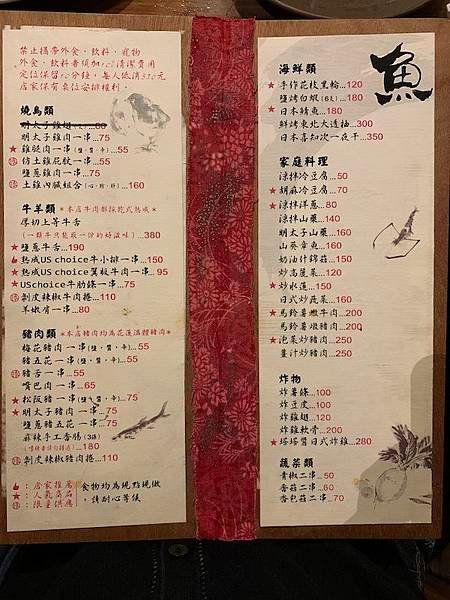 禁止攜帶外食、飲料、寵物
外食、飲料者須加收清潔費用
定位保留10分鐘，每人低消350元
店家保有桌位安排權利。
燒鳥類
明太子雞肉一串...75
雞腿肉一串(鹽、醬、辛)...55
仿土雞屁股一串(鹽、醬)...55
鹽蔥雞肉一串...75
土雞內臟組合(心、胗、肝)...160
牛羊類 *本店牛肉都採乾式熟成*
厚切上等牛舌
(一顆牛只能取一份的好滋味)...380
鹽蔥牛舌...190
熟成US choice牛小排一串...150
熟成US choice翼板牛肉一串...95
USchoice牛肋條一串...75
剝皮辣椒牛肉捲...110
羊嫩骨一串...80
豬肉類 *本店豬肉均為花蓮溫體豬肉*
梅花豬肉一串(鹽、醬)...55
豬五花一串(鹽、醬、辛)...55
豬舌一串...55
嘴巴肉一串...65
松阪豬一串(鹽、醬、辛)...75
明太子豬肉一串...75
鹽蔥豬五花一串...75
麻辣手工香腸(3條)
...180
剝皮辣椒豬肉捲...110
：店家推薦
：人氣商品
：限量供應
食物均為現點現做
，請耐心等候
魚
海鮮類
手作花枝黑輪...120
鹽烤白蝦(6支)...180
日本鯖魚...180
鮮烤東北大透抽...300
日本喜知次一夜干...350
家庭料理
涼拌冷豆腐...50
胡麻冷豆腐...70
涼拌洋蔥...80
涼拌山藥...140
明太子山藥...160
山葵章魚...160
奶油什錦菇...150
炒高麗菜...120
炒水蓮...150
日式炒蔬菜...160
馬鈴薯燉牛肉...200
馬鈴薯燉豬肉...200
泡菜炒豬肉...250
薑汁炒豬肉...250
炸物
炸薯條...100
炸豆皮...100
炸雞翅...120
炸雞軟骨...200
塔塔醬日式炸雞...280
蔬菜類
青椒二串...50
香菇二串...60
杏包菇二串...70